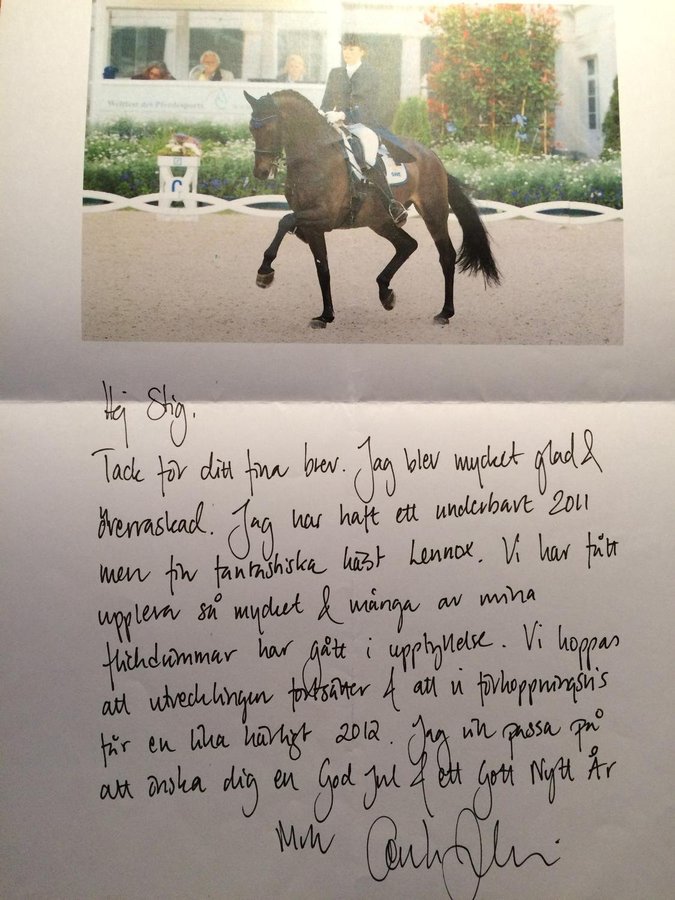 Weltfest des Pferdesports
SWE
Hej Stig.
Tack för ditt fina brev. Jag blev mycket glad &
överraskad. Jag har haft ett underbart 2011
men fin fantastiska häst Lennox. Vi har fått
uppleva så mycket & många av mina
flickdrömmar har gått i uppfyllelse. Vi hoppas
att utvecklingen fortsätter & att vi förhoppningsvis
får en lika härligt 2012. Jag vill passa på
att önska dig en God Jul & ett Gott Nytt År
Mvh